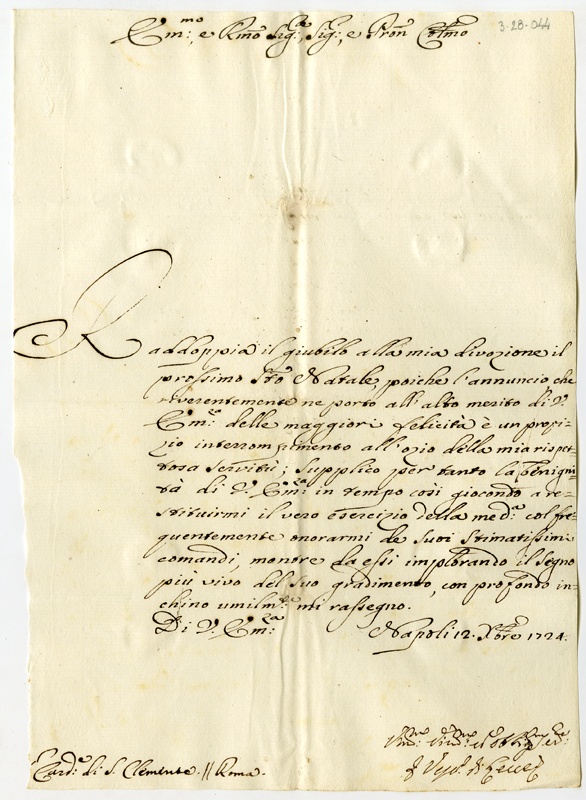 3-28-044
Em:mo, e Rmo Sig:re, Sig:, e Pron Colmo
Raddoppia il giubilo alla mia divozione il
prossimo Sto Natale, poiche l'annuncio che
riverentemente ne porto all'alto merito di V.
Em:za delle maggiori felicità è un propi-
zio interrompimento all'ozio della mia rispet-
tosa servitù; supplico per tanto la benigni-
tà di V. Em:za in tempo così giocondo a re-
stituirmi il vero esercizio della med:a col fre-
quentemente onorarmi de suoi stimatissimi
comandi, mentre da essi implorando il segno
più vivo del suo gradimento, con profondo in-
chino umilm:te mi rassegno.
Di V. Em:za
Napoli 12. Xbre 1724.
Card:e di S. Clemente. // Roma.